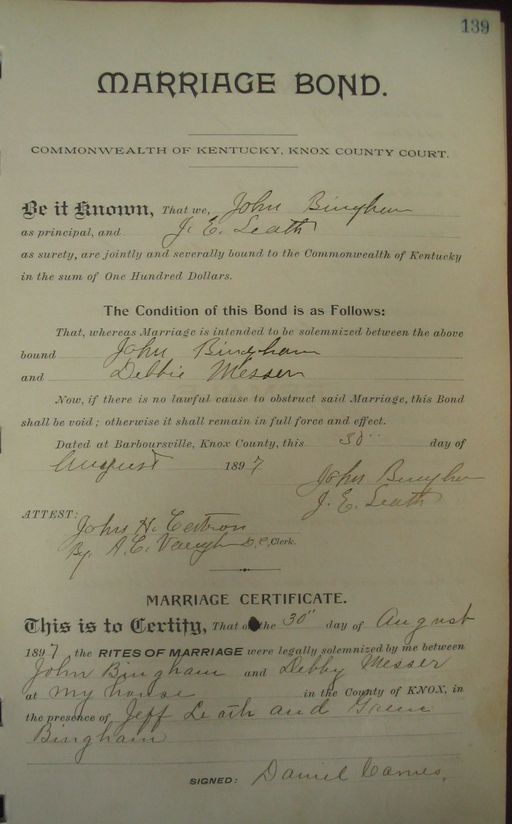 139
MARRIAGE BOND.
COMMONWEALTH OF KENTUCKY, KNOX COUNTY COURT.
Be it Known, That we, John Bingham
as principal, and J. E. Leath
as surety, are jointly and severally bound to the Commonwealth of Kentucky
in the sum of One Hundred Dollars.
The Condition of this Bond is as Follows:
That, whereas Marriage is intended to be solemnized between the above
bound John Bingham
and Debbie Messer
Now, if there is no lawful cause to obstruct said Marriage, this Bond
shall be void; otherwise it shall remain in full force and effect.
Dated at Barboursville, Knox County, this 30" day of
August 1897
John Bingham
J. E. Leath
ATTEST:
John H. Catron
By, A. C. Vaughn D. C, Clerk.
MARRIAGE CERTIFICATE.
This is to Certify, That on the 30" day of August
1897, the RITES OF MARRIAGE were legally solemnized by me between
John Bingham and Debby Messer
at my house in the County of KNOX, in
the presence of Jeff Leath and
Bingham
SIGNED: Daniel Carnes,